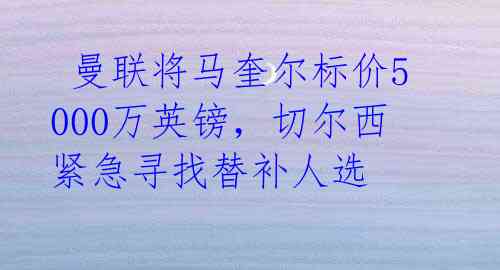 曼联将马奎尔标价5
000万英镑，切尔西
紧急寻找替补人选